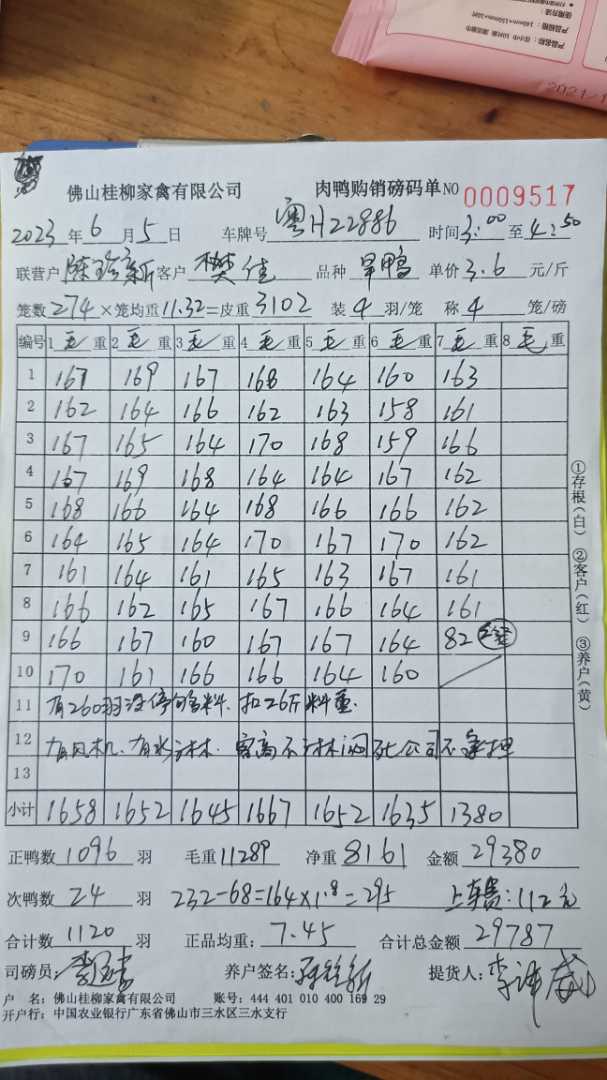 佛山桂柳家禽有限公司 肉鸭购销磅码单 NO 0009517
2023年6月5日 车牌号 粤H22886 时间3:00至4:50
联营户 陈 新 客户 樊佳 品种 旱鸭 单价 3.6 元/斤
笼数274×笼均重11.32=皮重3102 装4羽/笼 称4笼/磅
编号 1毛重 2毛重 3毛重 4毛重 5毛重 6毛重 7毛重 8毛重
1 167 169 167 168 164 160 163
2 162 164 166 162 163 158 161
3 167 165 164 170 168 159 166
4 167 169 168 164 164 167 162
5 168 166 164 168 166 166 162
6 164 165 164 170 167 170 162
7 161 164 161 165 163 167 161
8 166 162 165 167 166 164 161
9 166 167 160 167 167 164 82 2笼
10 170 161 166 166 164 160
11 有260羽没停 料. 扣26斤料重.
12 有风机、有水淋. 客高不淋 死公司不承担
13
小计 1658 1652 1645 1667 1652 1635 1380
正鸭数 1096 羽 毛重 11289 净重 8161 金额 29380
次鸭数 24 羽 232-68=164×1.8=295 上车费:112元
合计数 1120 羽 正品均重: 7.45 合计总金额 29787
司磅员: 养户签名: 提货人: 李
户 名: 佛山桂柳家禽有限公司 账号: 444 401 010 400 169 29
开户行: 中国农业银行广东省佛山市三水区三水支行
①存根(白) ②客户(红) ③养户(黄)